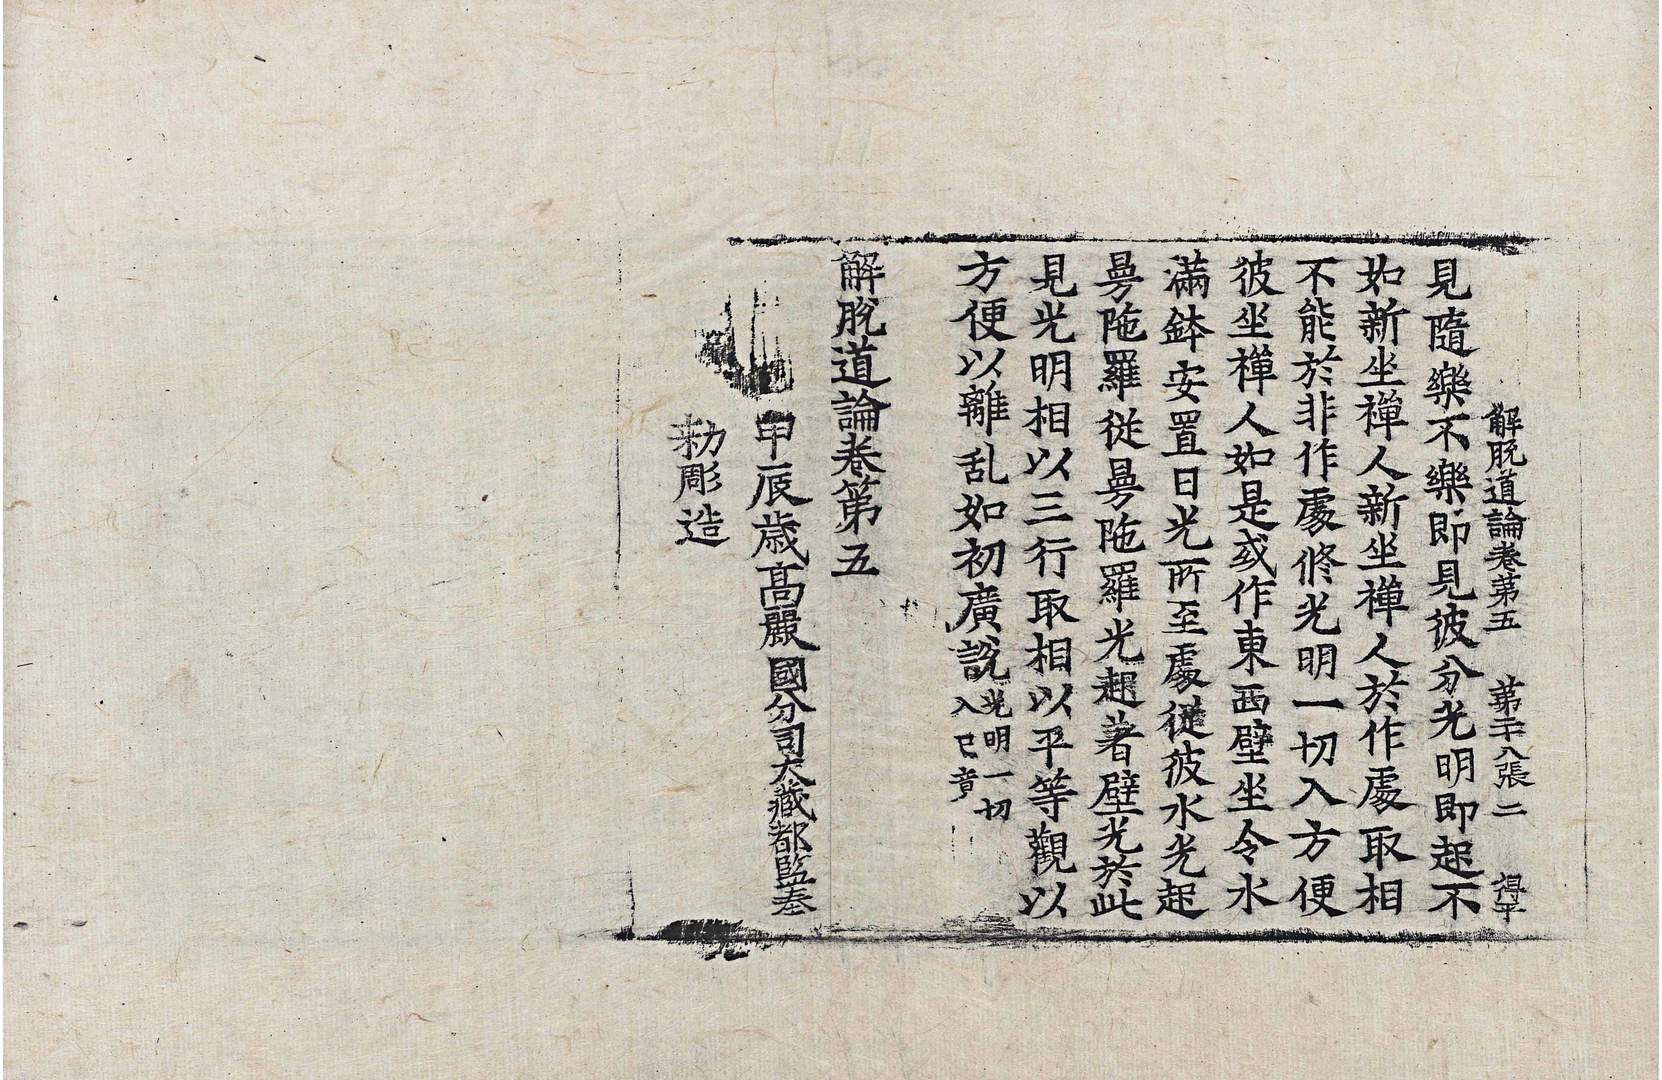 解脫道論卷第五　第二十八張　二　得平
見隨樂不樂即見彼分光明即起不
如新坐禪人新坐禪人於作處取相
不能於非作處修光明一切入方便
彼坐禪人如是或作東西壁坐令水
滿鉢安置日光所至處從彼水光起
曼陁羅從曼陁羅光起著壁光於此
見光明相以三行取相以平等觀以
方便以離乱如初廣說光明一切入已竟
解脫道論卷第五
甲辰歲髙麗國分司大藏都監奉
勑彫造